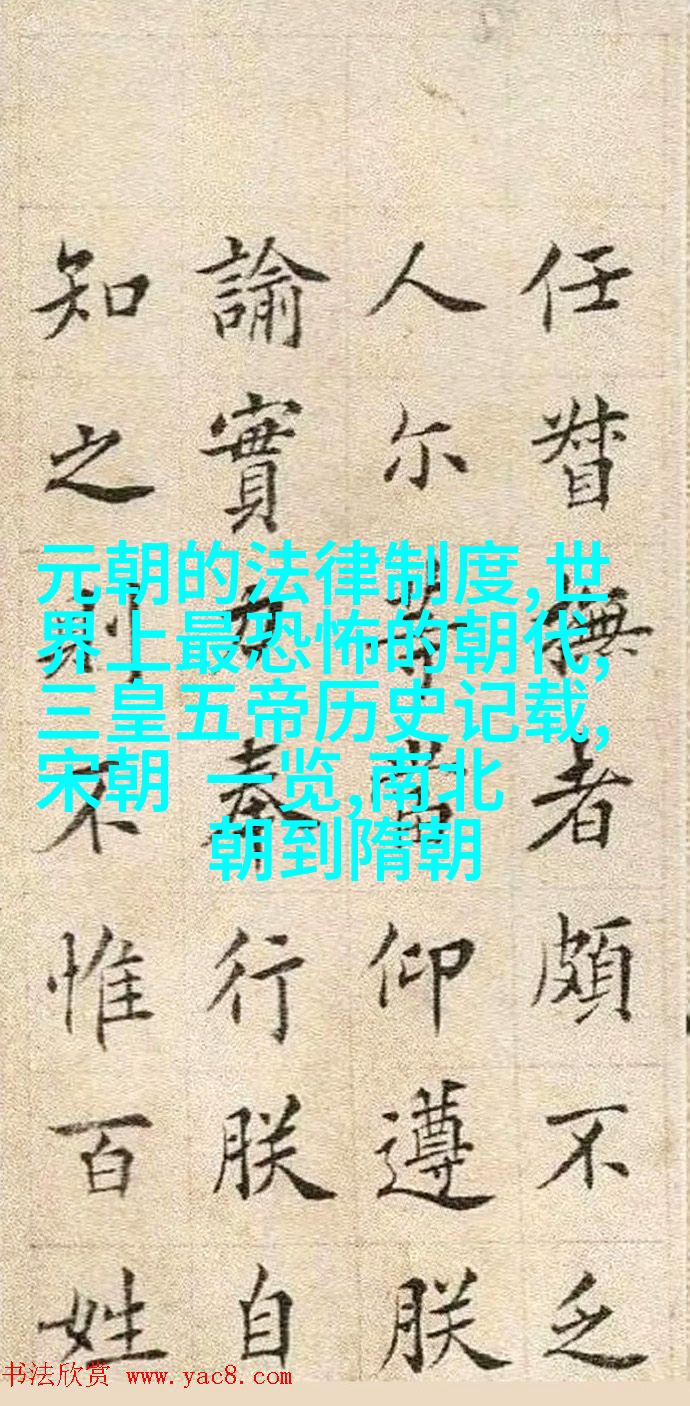 任督撫者頗不乏
人尔等當仰遵朕
諭實力奉行朕自
知之則不惟百姓
元朝的法律制度,世
界上最恐怖的朝代,
三皇五帝历史记载,
宋朝 一览,南北
朝到隋朝
书法欣赏 www.yac8.com